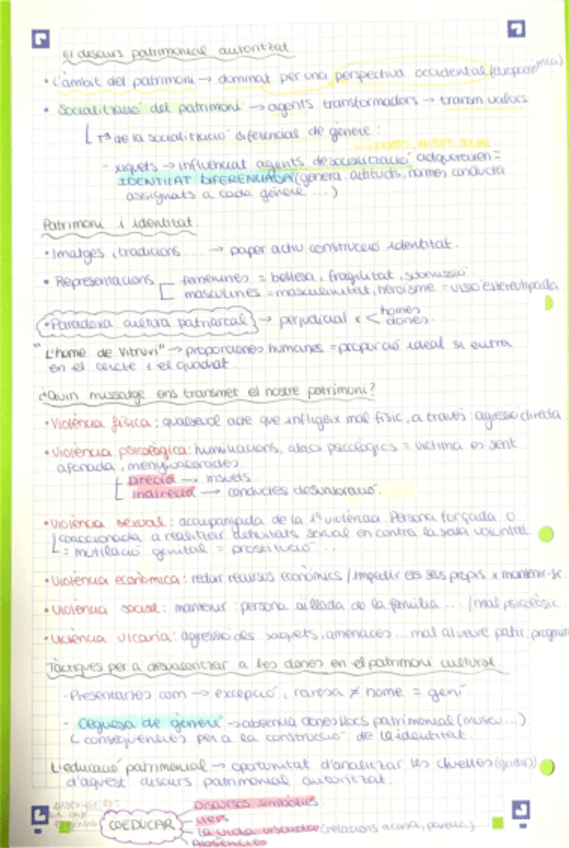 El discurs patrimonial autoritzat
• L'àmbit del patrimoni → dominat per una perspectiva occidental
• Socialització del patrimoni → agents transformadors → transm valors
de la socialització diferencial de gènere:
- xiquets → influenciat agents de socialització adquireixen =
IDENTITAT DIFERENCIADA (genera actituds, normes conducta
assignats a cada gènere ...)
Patrimoni i identitat.
• Imatges, tradicions ... → paper actiu construcció identitat.
• Representacions
femenines = bellesa, fragilitat, submissió
masculines = masculinitat, heroisme = visió estereotipada
• Paradoxa cultura patriarcal → perjudicial x < homes
dones.
"L'home de Vitruvi" → proporciones humanes = proporció ideal si entra
en el cercle i el quadrat.
¿Quin missatge ens transmet el nostre patrimoni?
• Violència física: qualsevol acte que infligeix mal físic, a través agressió directa.
• Violència psicològica: humiliacions, atacs psicològics = víctima es sent
directa → insults.
indirecta → conductes desvaloració.
• Violència sexual: acompanyada de la 1ª violència. Persona forçada o
coaccionada a realitzar activitats sexual en contra la seva voluntat
= mutilació genital = prostitució ...
• Violència econòmica: reduir recursos econòmics / impedir els seus propis x mantenir-se.
• Violència social: mantenir persona aïllada de la família ... / mal psicològic.
• Violència vicaria: agressió als xiquets, amenaces ... mal al veure patir
Tàctiques per a desvaloritzar a les dones en el patrimoni cultural
- Presentarles com → excepció, raresa ≠ home = geni.
- Ceguesa de gènere → absència dones llocs patrimonial (museu ...)
conseqüències per a la construcció de la identitat.
L'educació patrimonial → oportunitat d'analitzar les clivelles
d'aquest discurs patrimonial autoritzat.
COEDUCAR
Discursos simbòlics
la vida (relacions a casa, parella)
Absències